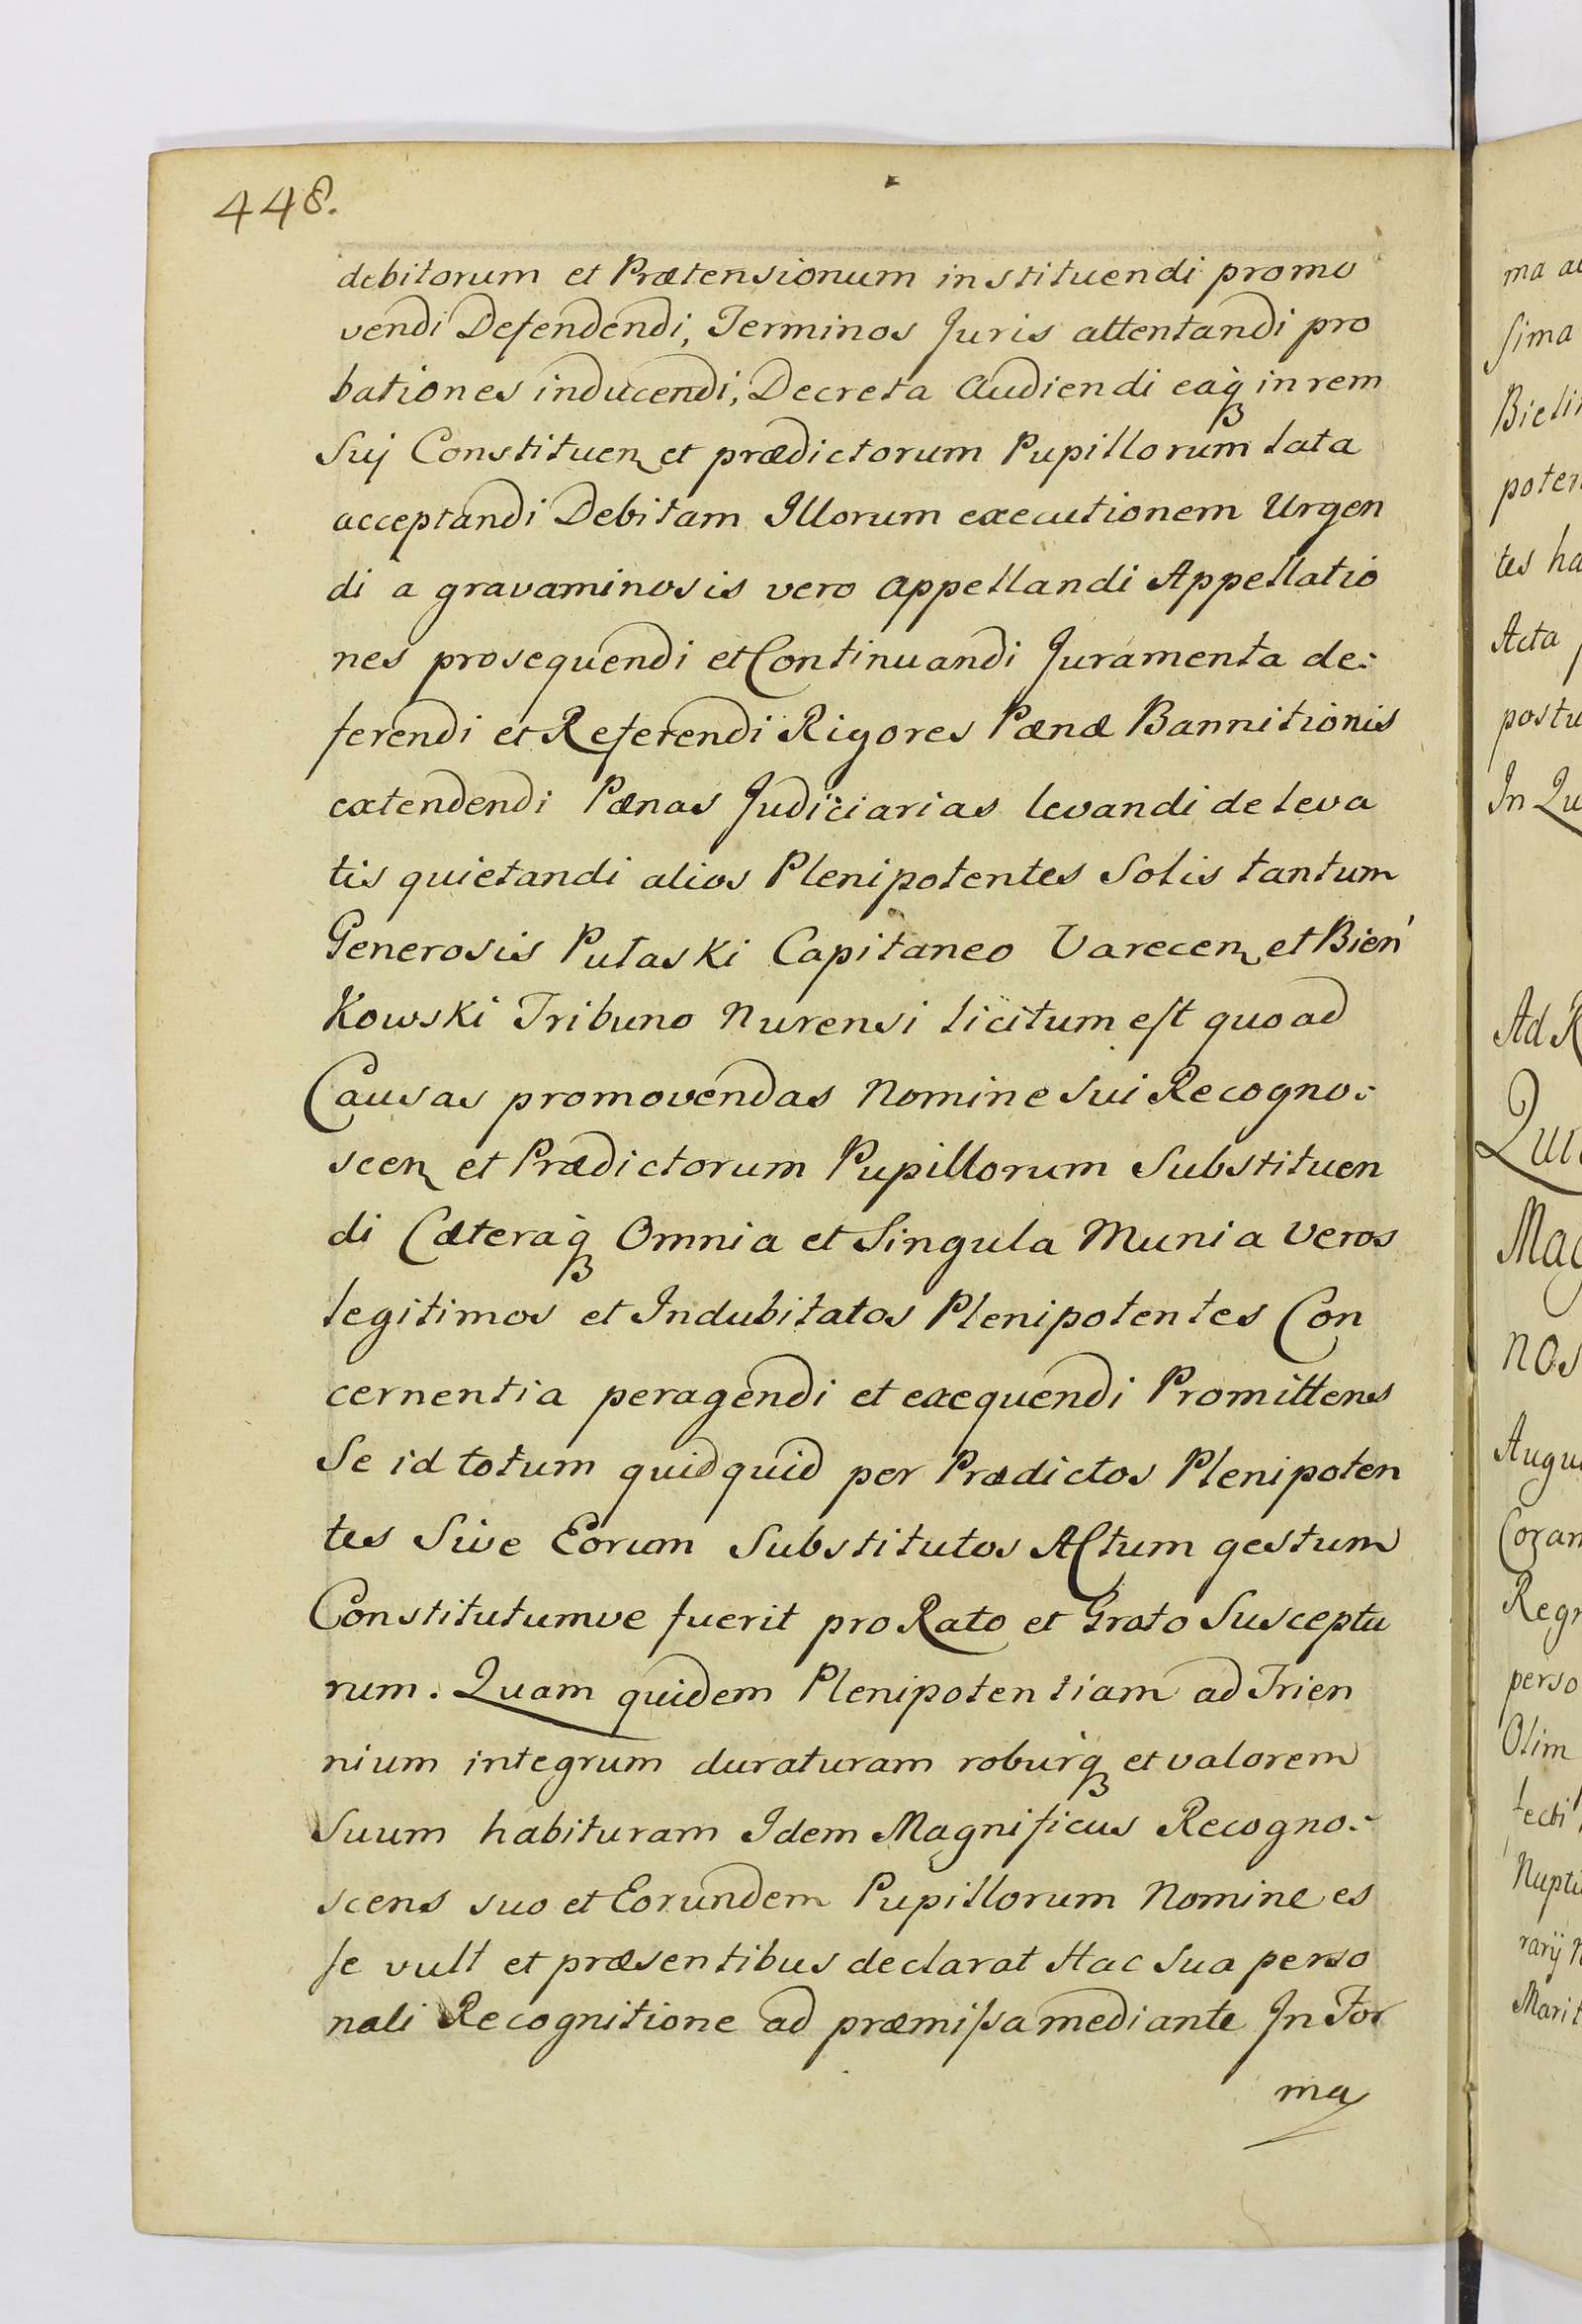 448.
debitorum et Prætensionum instituendi promo
vendi Defendendi, Terminos Juris attentandi pro
bationes inducendi, Decreta Audiendi eaq́ꝫ in rem
Sui Constituen et prædictorum Pupillorum lata
acceptandi Debitam Illorum executionem Urgen
di a gravaminosis vero appellandi Appellatio
nes prosequendi et Continuandi Juramenta de:
ferendi et Referendi Rigores Pænæ Bannitionis
extendendi Pænas Judiciarias levandi de leva
tis quietandi alios Plenipotentes Solis tantum
Generosis Pułaski Capitaneo Varecen et Bień
Kowski Tribuno Nurensi licitum est quoad
Causas promovendas Nomine Sui Recogno:
scen et Prædictorum Pupillorum Substituen
di Cæteraq́ꝫ Omnia et Singula Munia Veros
legitimos et Indubitatos Plenipotentes Con
cernentia peragendi et exequendi Promittens
Se id totum quidquid per Prædictos Plenipoten
tes Sive Eorum Substitutos Actum gestum
Constitutumve fuerit pro Rato et Grato Susceptu
rum. Quam quidem Plenipotentiam ad Trien
nium integrum duraturam roburq́ꝫ et valorem
Suum habituram Idem Magnificus Recogno:
scens suo et Eorundem Pupillorum Nomine es
se vult et præsentibus declarat Hac Sua perso
nali Recognitione ad præmissa mediante In For
ma
ma
sima
poten
tes ha
Acta
postu
In Qu
Ad R
Mag
nos
Augu
Coran
Regn
perso
Olim
Nupti
Marit